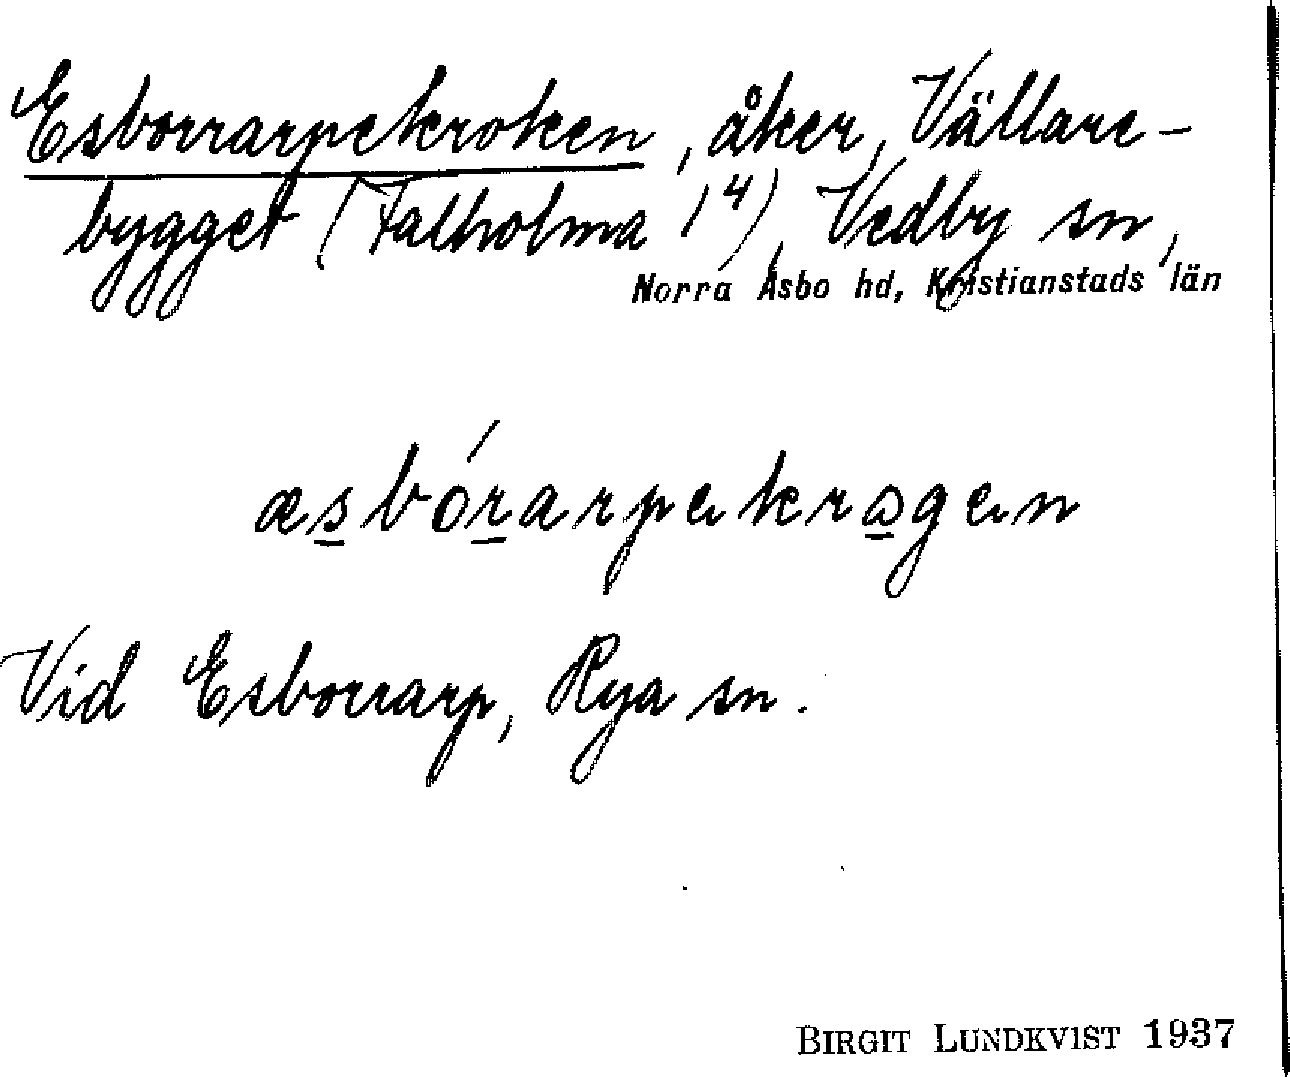 Esborrarpekroken, åker, Vällare-
bygget (Falholma 1⁴), Vedby sn,
Norra Åsbo hd, Kristianstads län
æs̲bór̲arpekrɷ̲gen
Vid Esborrarp, Rya sn.
BIRGIT LUNDKVIST 1937